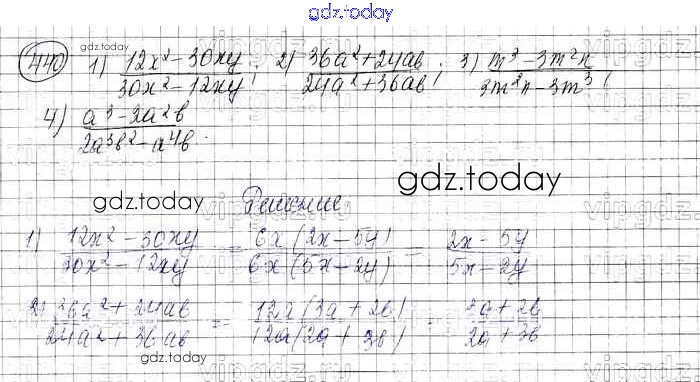 gdz.today
440 1) (12x² - 30xy)/(30x² - 12xy); 2) (36a² + 24ab)/(24a² + 36ab); 3) (m³ - 3m²n)/(3m²n - 3m³);
gdz.today
4) (a³ - 2a²b)/(2a³b² - a⁴b).
gdz.today
gdz.today
Решение
1) (12x² - 30xy)/(30x² - 12xy) = 6x(2x - 5y)/6x(5x - 2y) = (2x - 5y)/(5x - 2y)
2) (36a² + 24ab)/(24a² + 36ab) = 12a(3a + 2b)/12a(2a + 3b) = (3a + 2b)/(2a + 3b)
gdz.today